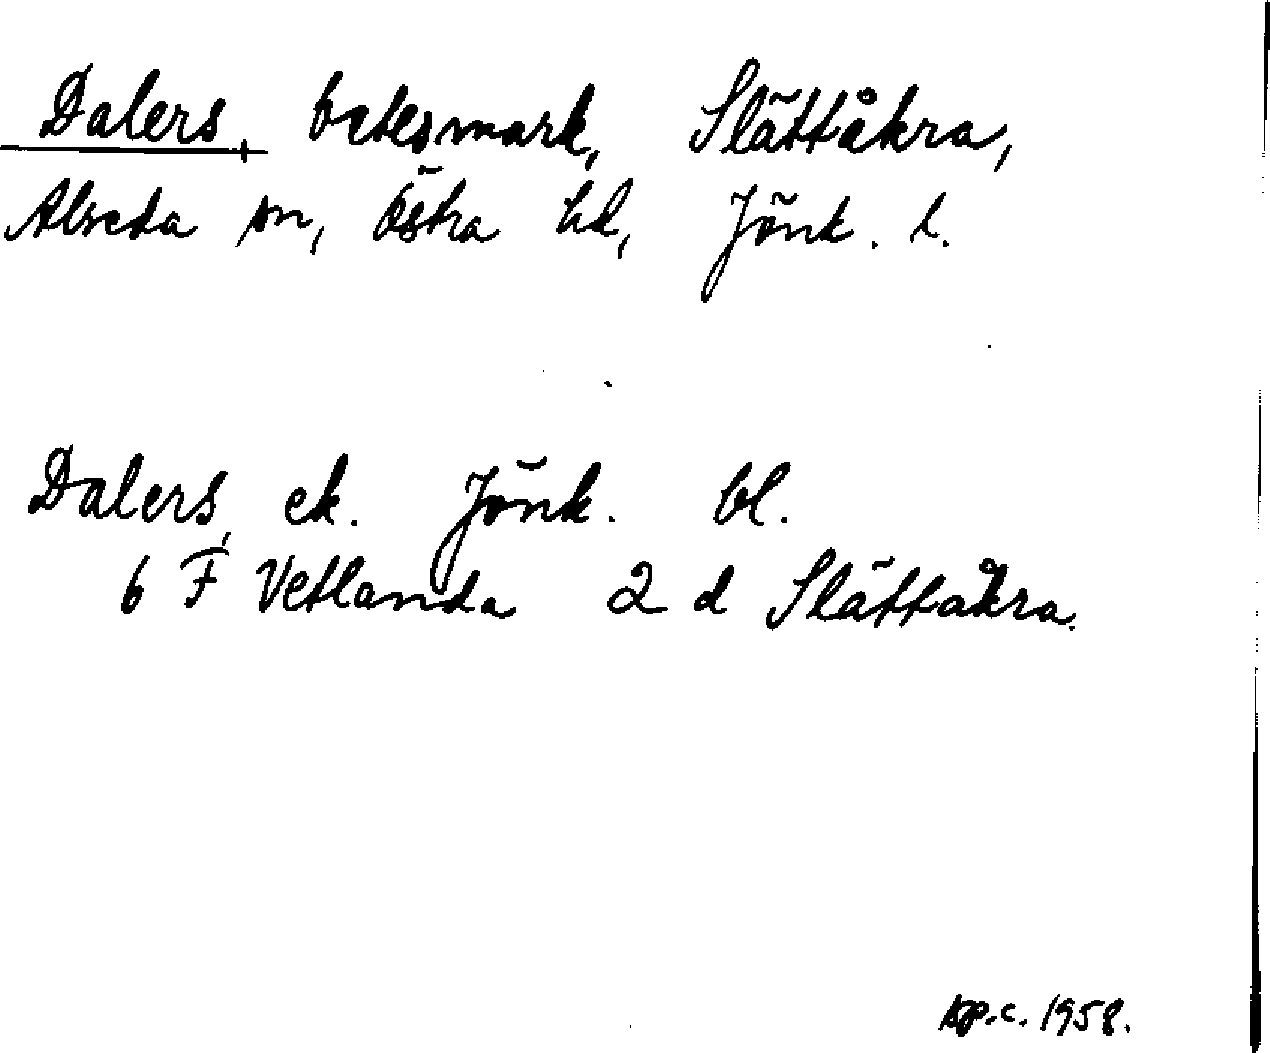 Dalers, betesmark, Slättåkra,
Alseda sn, Östra hd, Jönk. l.
Dalers, ek. Jönk. bl.
6 F Vetlanda 2 d Slättåkra.
kp.c. 1958.